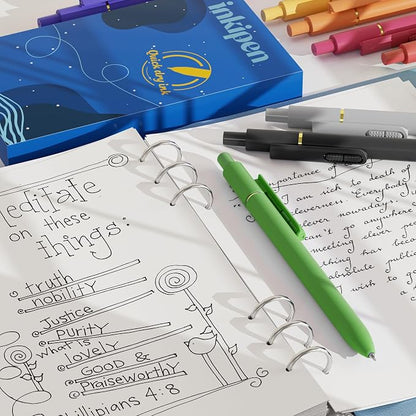 inkipen
Quick dry ink
meditate
on these
things:
truth
nobility
Justice
Purity
what is
lovely
GOOD &
Praiseworthy
Phillipians 4:8
importance of
I am sick to death of
cleverness. Everybody
clever nowadays.
can't go anywhere
meeting clever
thing has
absolute public
I wish to g